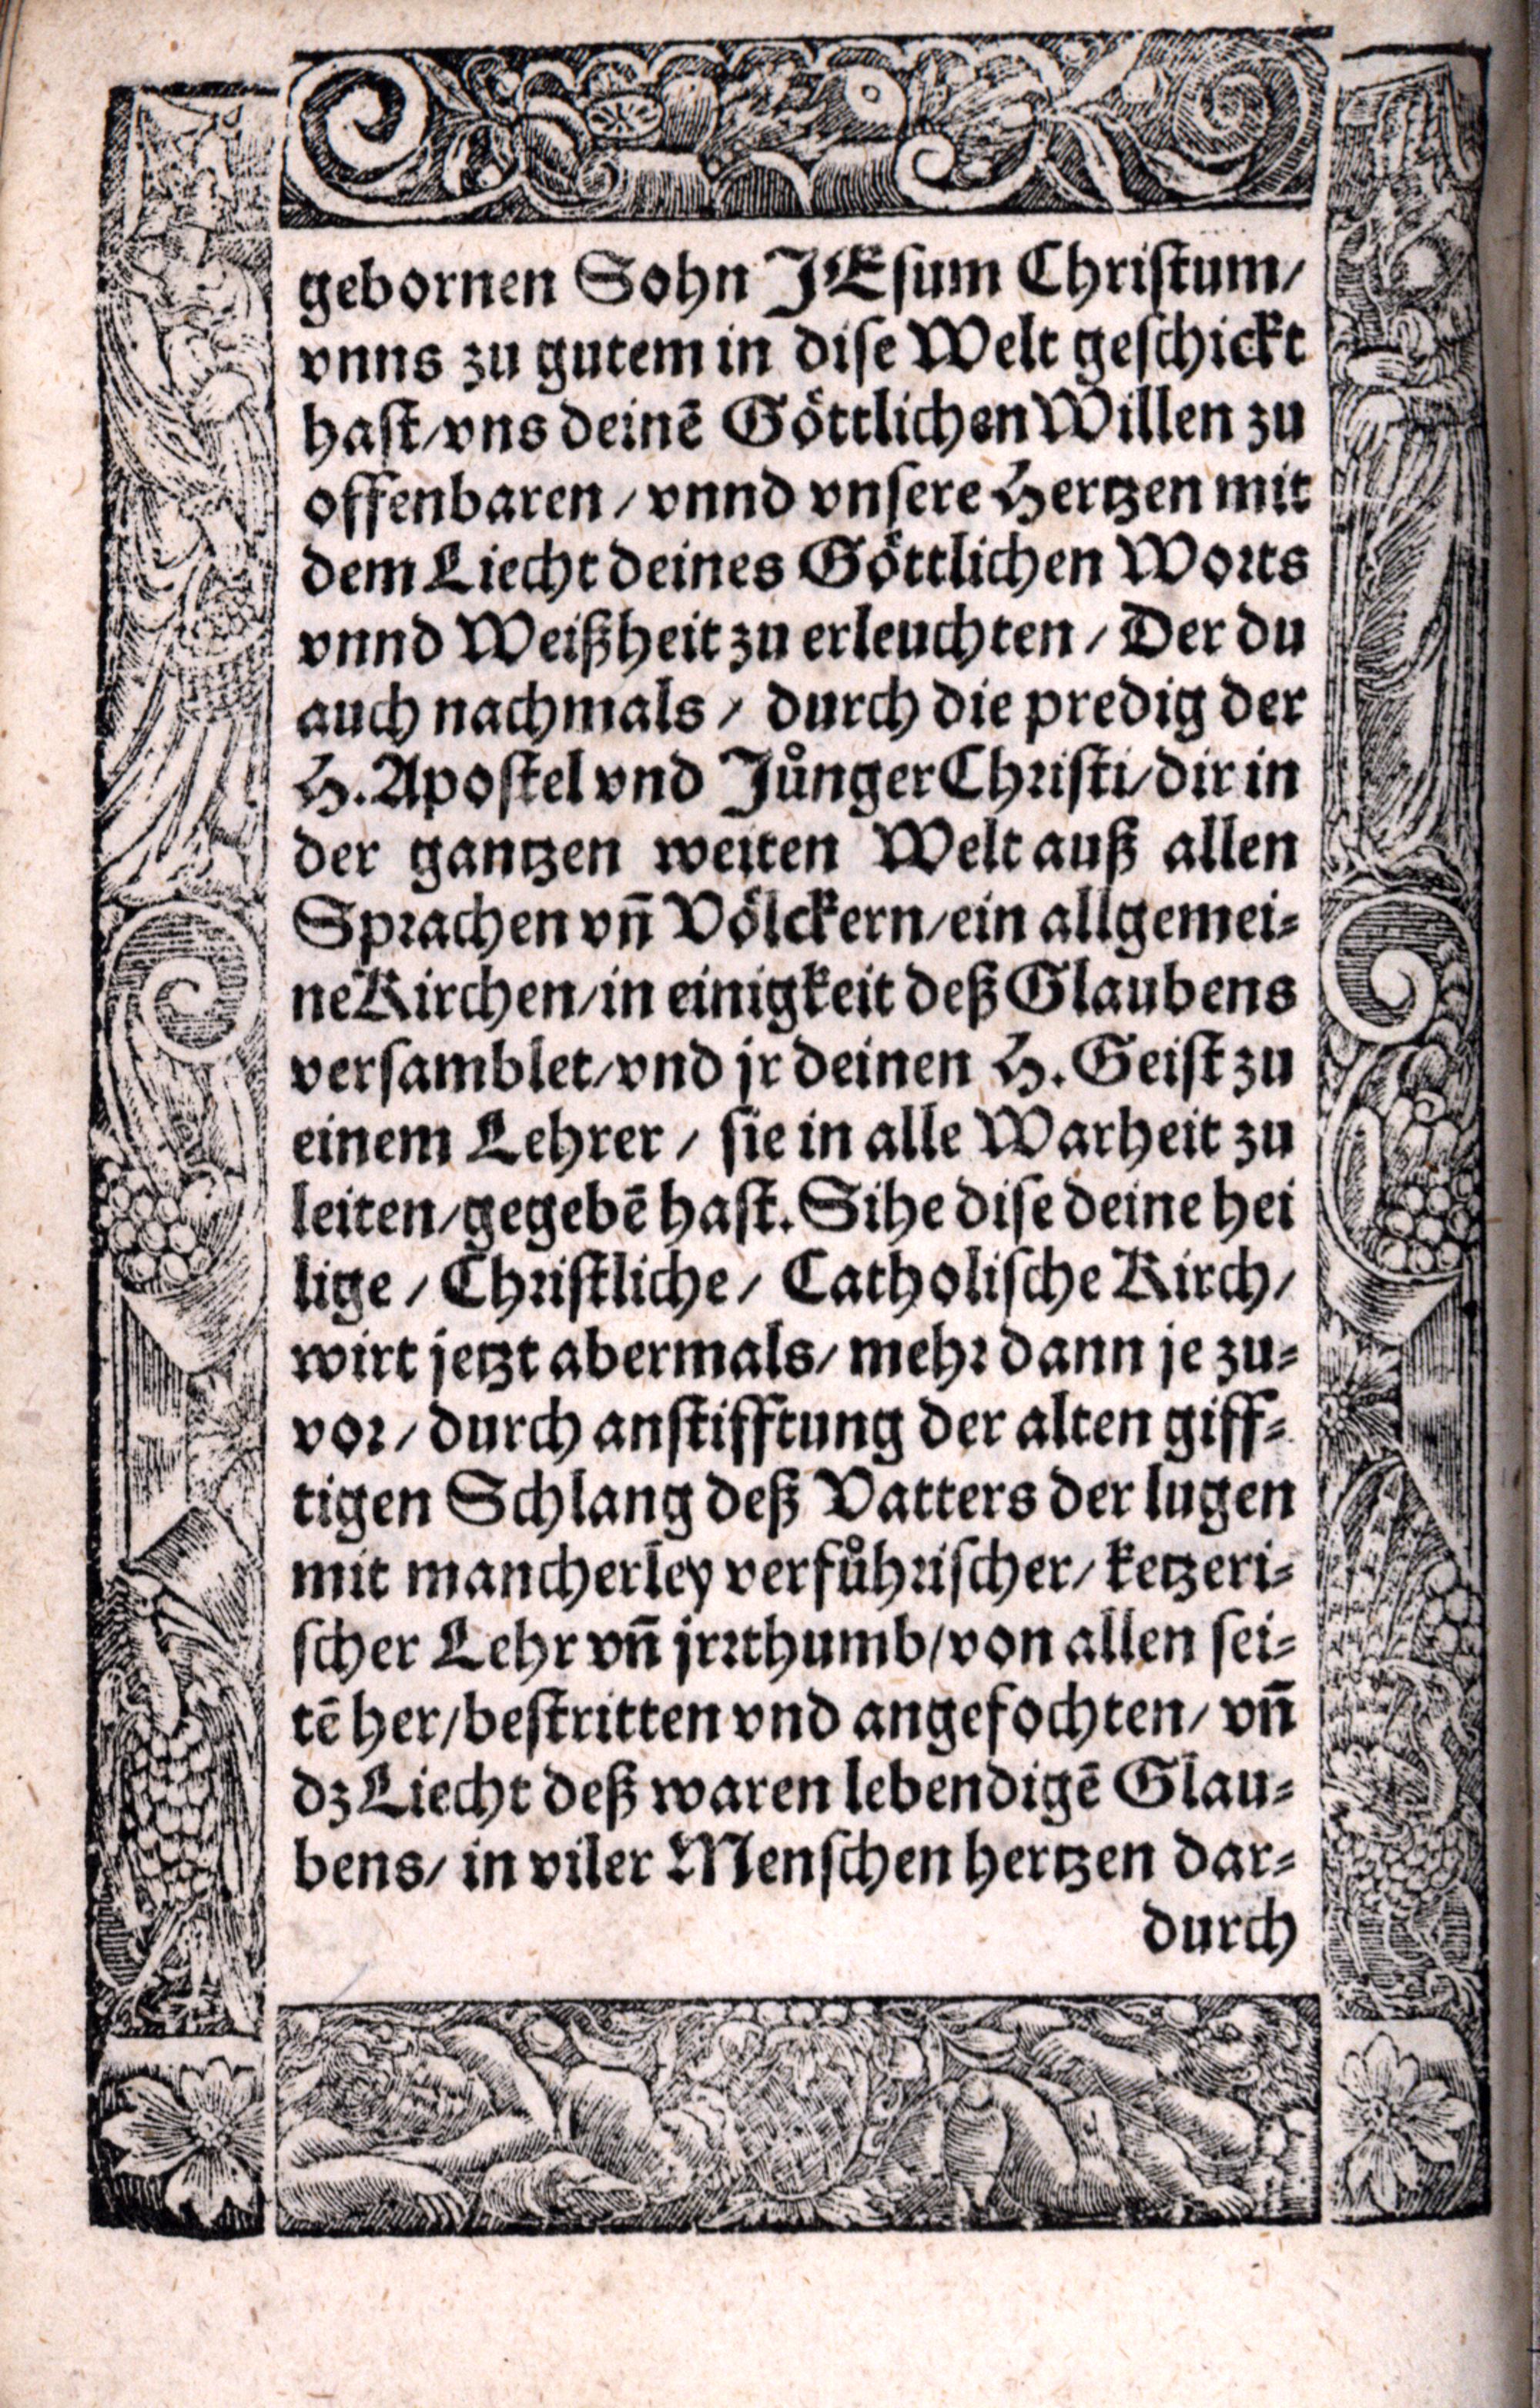 gebornen Sohn JEsum Christum/
vnns zu gutem in dise Welt geschickt
hast/vns deinẽ Göttlichen Willen zu
offenbaren/vnnd vnsere Hertzen mit
dem Liecht deines Göttlichen Worts
vnnd Weißheit zu erleuchten/Der du
auch nachmals/durch die predig der
H. Apostel vnd Jůnger Christi/dir in
der gantzen weiten Welt auß allen
Sprachen vñ Völckern/ein allgemei-
ne Kirchen/in einigkeit deß Glaubens
versamblet/vnd jr deinen H. Geist zu
einem Lehrer/sie in alle Warheit zu
leiten/gegebẽ hast. Sihe dise deine hei
lige/Christliche/Catholische Kirch/
wirt jetzt abermals/mehr dann je zu-
vor/durch anstifftung der alten giff-
tigen Schlang deß Vatters der lugen
mit mancherley verfůhrischer/ketzeri-
scher Lehr vñ jrrthumb/von allen sei-
tẽ her/bestritten vnd angefochten/vñ
dz Liecht deß waren lebendigẽ Glau-
bens/in viler Menschen hertzen dar-
durch